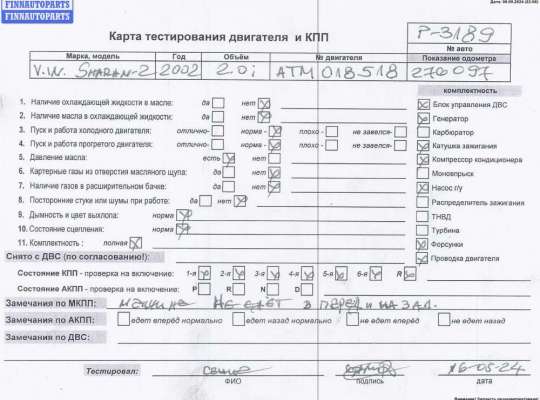 FINNAUTOPARTS
FINNAUTOPARTS
Карта тестирования двигателя и КПП
P-3189
№ авто
Марка, модель Год Объём № двигателя Показание одометра
V.W. SHARAN-2 2002 2.0i ATM 018518 276097
комплектность
1. Наличие охлаждающей жидкости в масле: да нет
2. Наличие масла в охлаждающей жидкости: да нет
3. Пуск и работа холодного двигателя: отлично- норма - плохо - не завелся-
4. Пуск и работа прогретого двигателя: отлично- норма - плохо - не завелся-
5. Давление масла: есть нет
6. Картерные газы из отверстия масляного щупа: да нет
7. Наличие газов в расширительном бачке: да нет
8. Посторонние стуки или шумы при работе: да нет
9. Дымность и цвет выхлопа: норма
10. Состояние сцепления: норма
11. Комплектность : полная
Блок управления ДВС
Генератор
Карбюратор
Катушка зажигания
Компрессор кондиционера
Моновпрыск
Насос г/у
Распределитель зажигания
ТНВД
Турбина
Форсунки
Проводка двигателя
Снято с ДВС (по согласованию!):
Состояние КПП - проверка на включение: 1-я 2-я 3-я 4-я 5-я 6-я R
Состояние АКПП - проверка на включение: P R N D
Замечания по МКПП: машина не едет в перед и на зад.
Замечания по АКПП: едет вперед нормально едет назад нормально не едет вперёд не едет назад
Замечания по ДВС:
Тестировал: 16-05-24
ФИО подпись дата